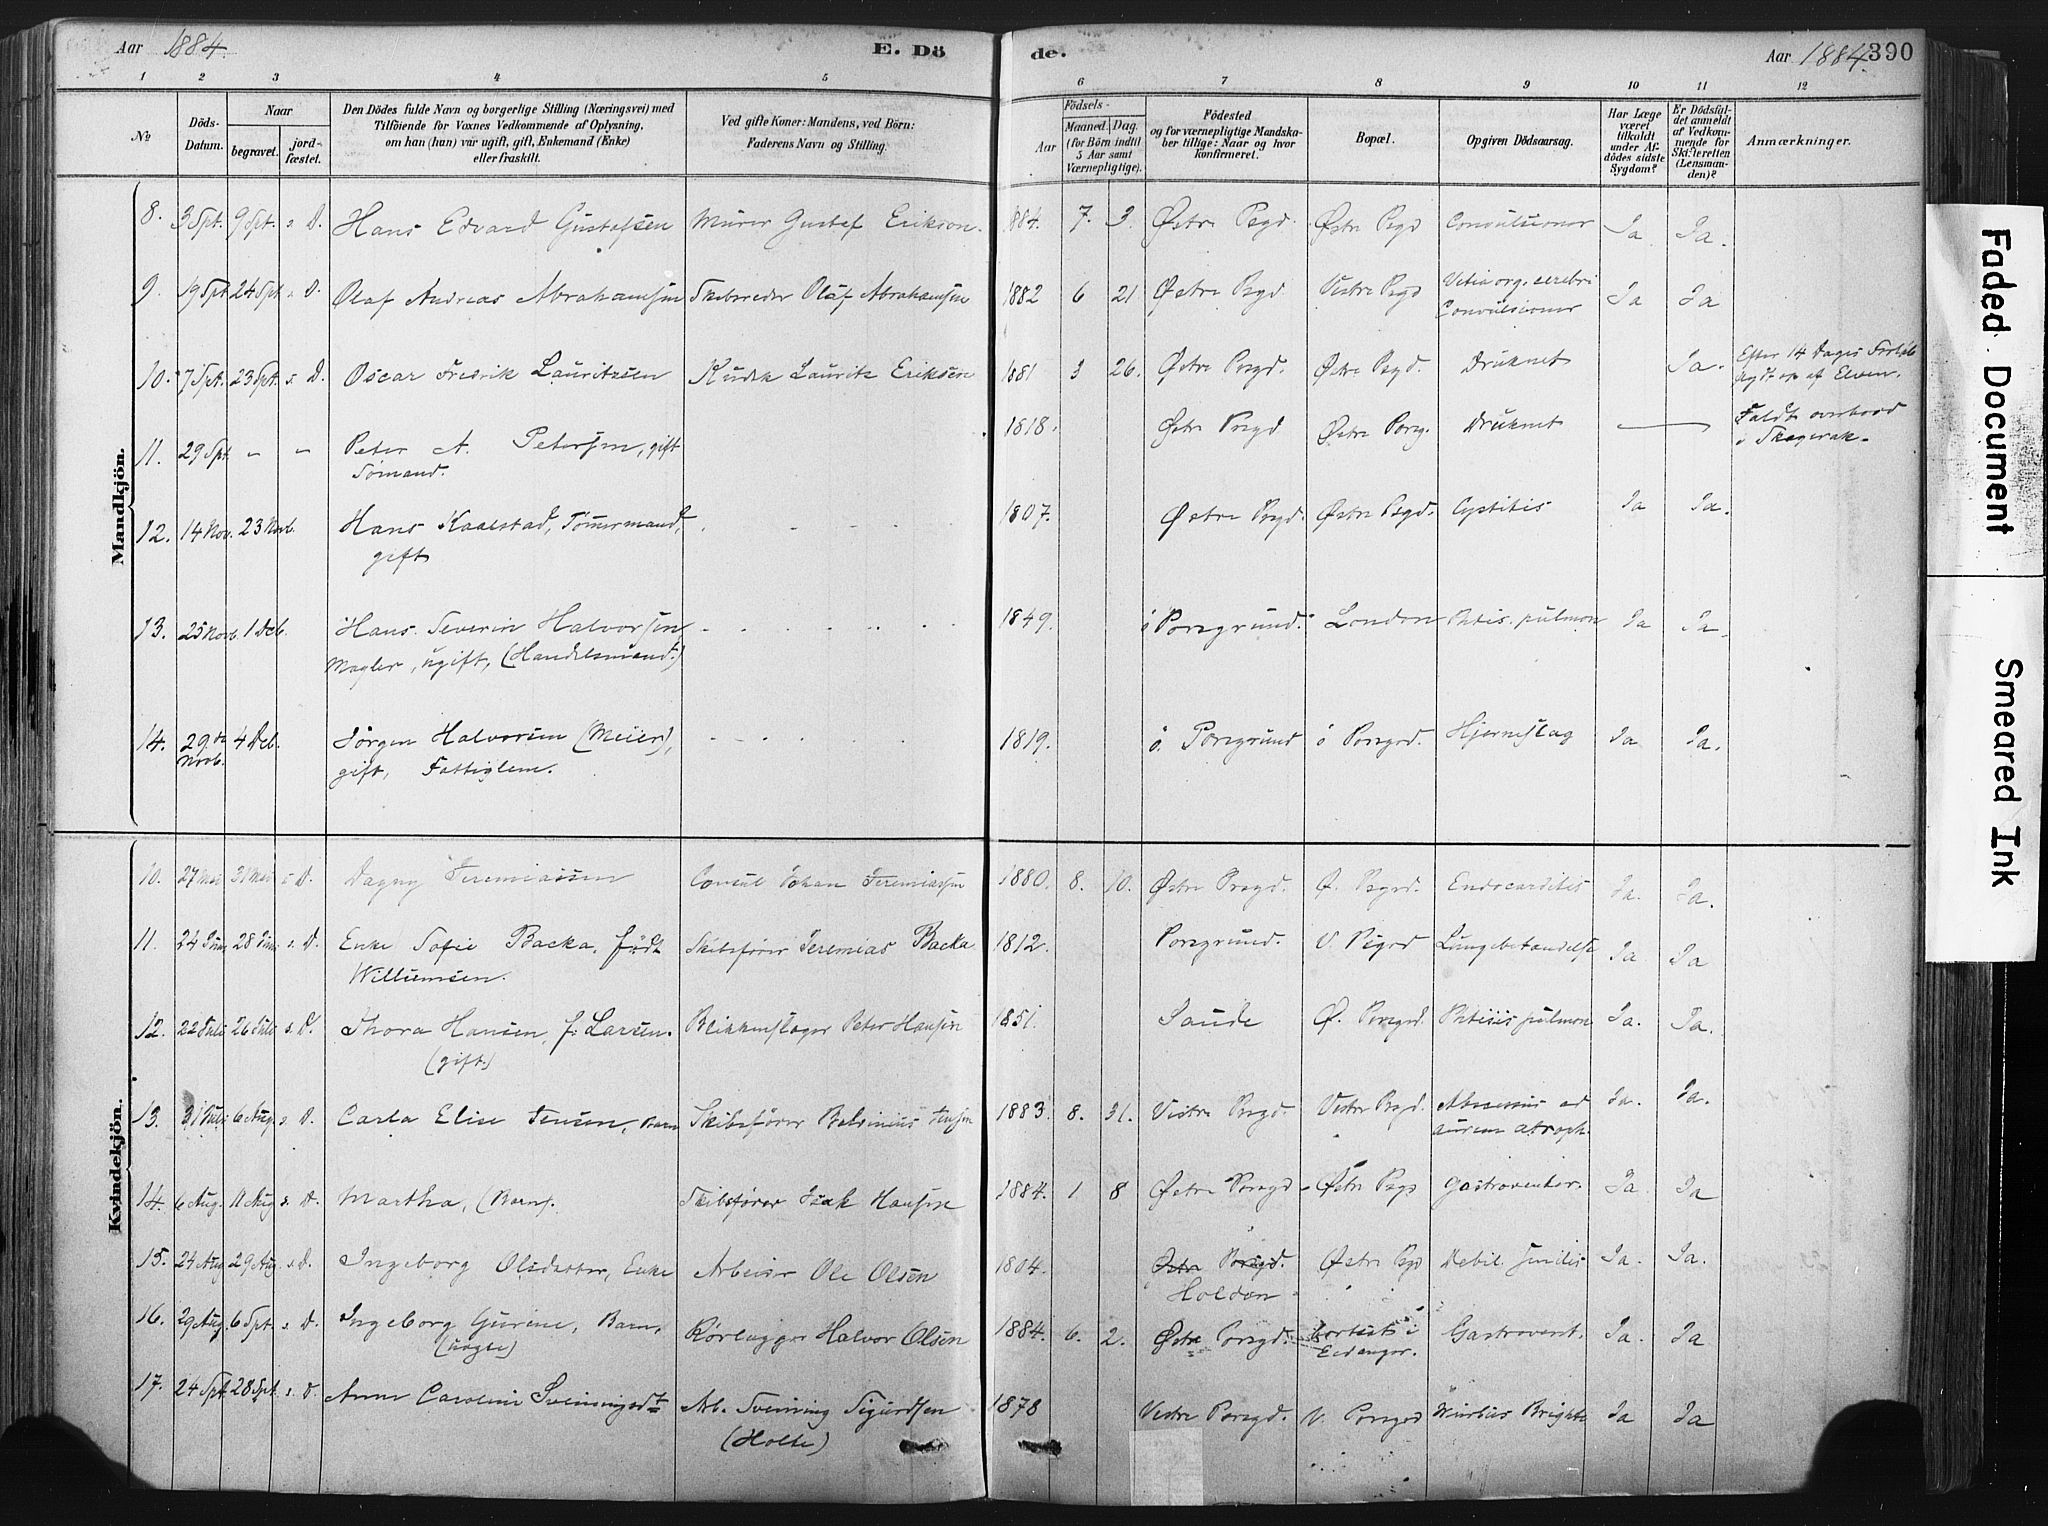 Aar 1884. E. Dö de. Aar 1884. 390
1 2 3 4 5 6 7 8 9 10 11 12
№
Döds-Datum.
Naar
begravet.
jord-fæstet.
Den Dödes fulde Navn og borgerlige Stilling (Næringsvei) med
Tilföiende for Voxnes Vedkommende af Oplysning,
om han (hun) var ugift, gift, Enkemand (Enke)
eller fraskilt.
Ved gifte Koner: Mandens, ved Börn:
Faderens Navn og Stilling.
Födsels-
Aar
Maaned. Dag.
(for Börn indtil
5 Aar samt
Værnepligtige).
Födested
og for værnepligtige Mandska-
ber tillige: Naar og hvor
konfirmeret.
Bopæl.
Opgiven Dödsaarsag.
Har Læge
været
tilkaldt
under Af-
dödes sidste
Sygdom?
Er Dödsfal-
det anmeldt
af Vedkom-
mende for
Skifteretten
(Lensman-
den)?
Anmærkninger.
Mandkjön.
8. 3 Spt. 9 Spt. s. D. Hans Edvard Gustafsen Murer Gustef Erikson. 1884. 7. 3. Østre Psgd. Østre Psgd Convulsioner Ja Ja.
9. 19 Spt 24 Spt s. D. Olaf Andreas Abrahamsen Skibsreder Oluf Abrahamsen 1882 6 21 Østre Psgd Vestre Psgd Vitia org. cerebri Ja Ja
Convulsioner
10. 7 Spt. 23 Spt. s. D. Oscar Fredrik Lauritzen Kudsk Lauritz Eriksen 1881 3 26. Østre Porsgd. Østre Psgd. Druknet Ja. Efter 14 Dages Forløb
op af Elven.
11. 29 Spt. - - Peter A. Petersen, gift 1818. Østre Prsgd Østre Porsg. Druknet — Faldt overbord
Sømand. i Skagerak.
12. 14 Nov. 23 Novb. Hans Kaalstad, Tømermand, 1807. Østre Psgd. Østre Psgd. Cystitis Ja Ja.
gift
13. 25 Novb. 1 Deb. Hans Severin Halvorsen, 1849. ö Porsgrund. London Phtis. pulmon Ja Ja.
Mægler, ugift, (Handelsmand.)
14. 29de 4 Deb. Jörgen Halvorsen (Meier), 1819. ö. Porsgrund ö Porsgrd. Hjerneslag Ja Ja.
Novb. gift, Fattiglem.
Kvindekjön.
10. 27 Mai 31 Mai s D. Dagny Jeremiassen Consul Johan Jeremiassen 1880. 8. 10. Østre Prsgd. Ø. Psgrd. Endocarditis Ja. Ja.
11. 24 Juni 28 Juni s. D. Enke Sofie Backa, født Skibsfører Jeremias Backa 1812. Porsgrund. V. Psgrd Lungebetændelse Ja Ja
Willumsen.
12. 22 Juli 26 Juli s. D. Thora Hansen, f. Larsen. Blikkenslager Peter Hansen 1851. Saude Ø. Porsgrd. Phtisis pulmon Ja. Ja.
(gift.)
13. 31 Juli 6 Aug. s. D. Carla Elise Jensen, Barn Skibsfører Jensen 1883. 8. 31. Vestre Porsgd. Vestre Psgd. ad Ja. Ja.
aurem atroph.
14. 6 Aug. 11 Aug s. D. Martha, (Barn). Skibsfører Isak Hansen 1884. 1 8 Østre Porsgd Østre Psgd Gastroenter. Ja. Ja
15. 24 Aug 29 Aug. s. D. Ingeborg Olsdatter, Enke Arbeider Ole Olsen 1804. Østre Porsgd. Østre Psgd Debil. senilis Ja. Ja.
Holden
16. 29 Aug. 6 Spt. s. D. Ingeborg Gurine, Barn, Rørlægger Halvor Olsen 1884. 6. 2. Østre Porsgd. bortsat i Gastroent. Ja. Ja
(uægte) Eidanger.
17. 24 Spt. 28 Spt. s. D. Anne Caroline Svenningsdt. Arb. Svenning Sigurdsen 1878 Vestre Porsgd. V. Porsgrd Morbus Brightii Ja Ja
(Holte)
Faded Document
Smeared Ink